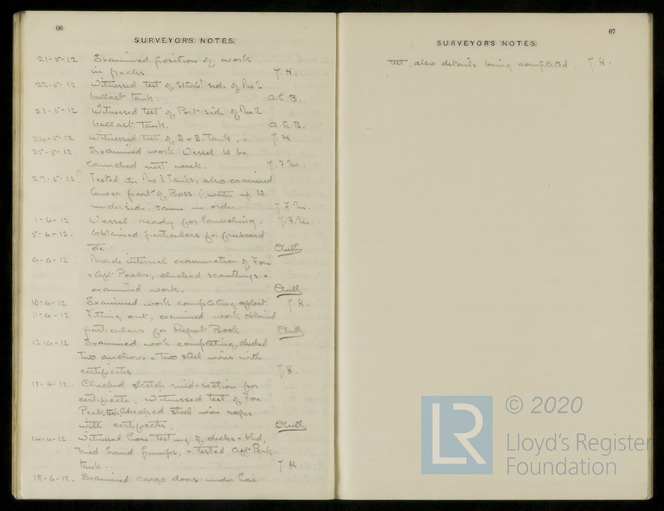 66
SURVEYOR'S NOTES.
21-5-12 Examined position of work
in peaks. J.H.
22-5-12 Witnessed test of Starb'd side of No 2
ballast tank. A.G.B.
23-5-12 Witnessed test of Port side of No 2
ballast tank. A.G.B.
Witnessed test of Tank, J.H
25-5-12 Examined work. Vessel to be
launched next week. J.F.M.
29-5-12 Tested the Tanks, also examined
lower part of Boss up to
underside; same in order. J.F.M.
1-6-12 Vessel ready for launching. J.F.M.
5-6-12. Obtained particulars for freeboard
etc.
6-6-12 Made internal examination of Fore
& Aft Peaks, checked scantlings &
examined work.
10-6-12 Examined work completing afloat J.H.
11-6-12 Fitting out, examined work obtained
particulars for Report Book
12-6-12 Examined work completing, checked
two anchors & two steel wires with
certificates J.H.
13-6-12. Checked sketch mid-section for
certificate, Witnessed test of Fore
Peak tank checked steel wire ropes
with certificates.
14-6-12. Witnessed hose testing of decks &
tried hand pumps, & tested Aft Peak
tank. J.H
15-6-12. Examined cargo doors under hose
67
SURVEYOR'S NOTES.
test, also details being completed. J.H.
LR
© 2020
Lloyd's Register
Foundation